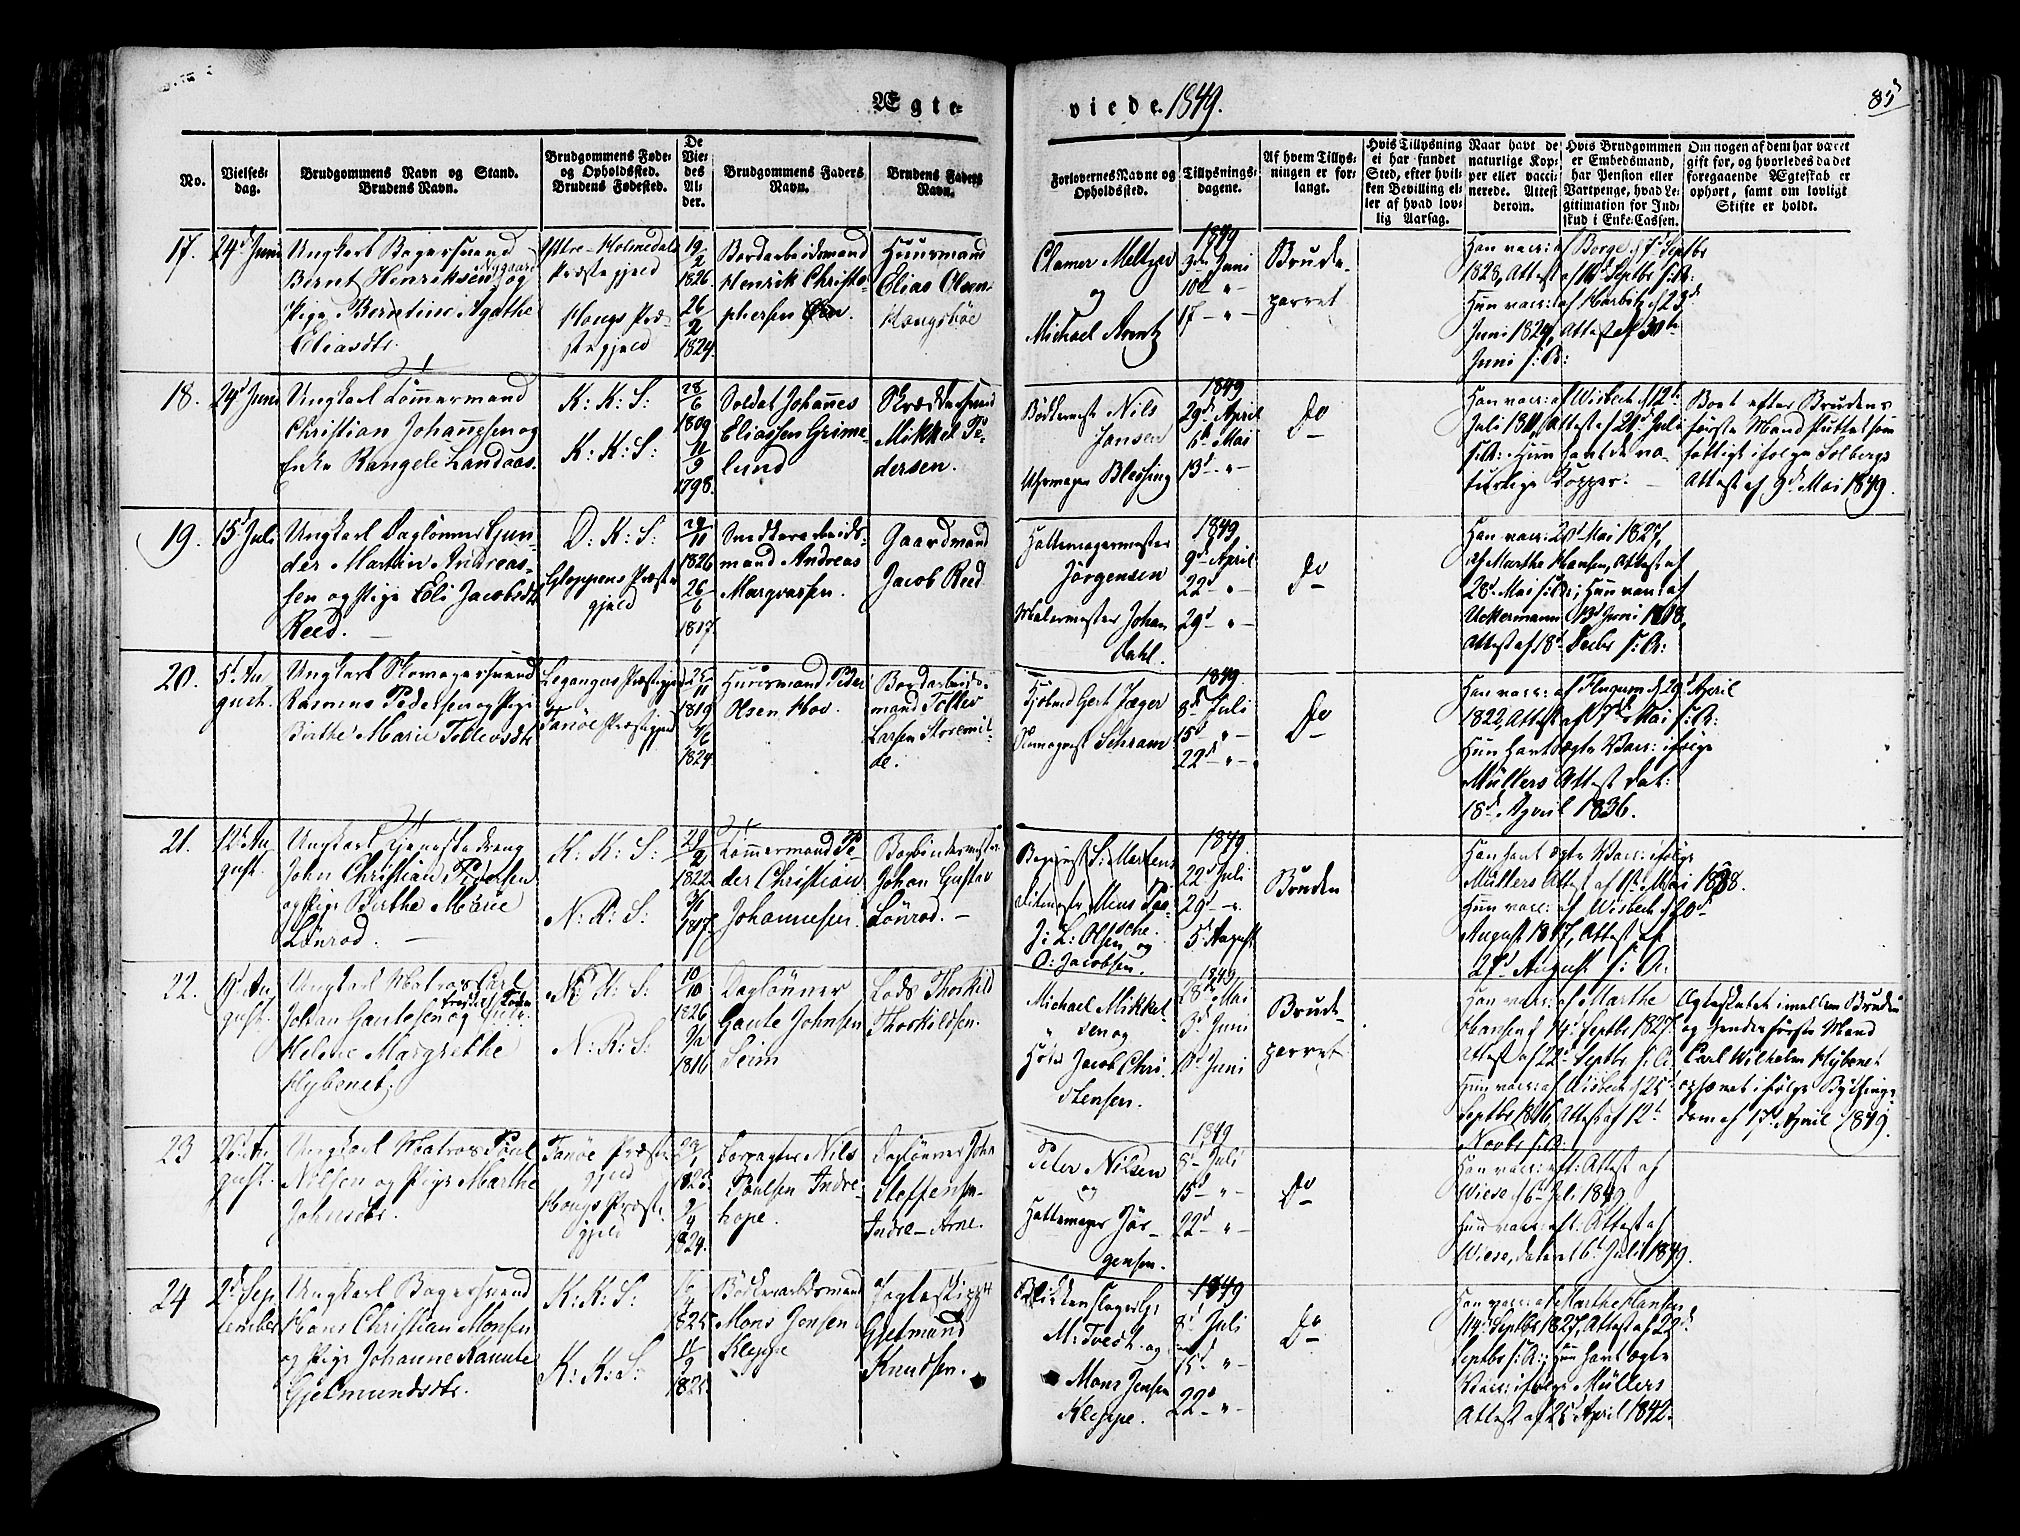 Ægte-
viede 1849.
85
No.
Vielses-
dag.
Brudgommens Navn og Stand.
Brudens Navn.
Brudgommens Føde-
og Opholdssted.
Brudens Fødested.
De
Vie-
des
Al-
der.
Brudgommens Faders
Navn.
Brudens Faders
Navn.
Forlovernes Navne og
Opholdssted.
Tillysnings-
dagene.
Af hvem Tillys-
ningen er for-
langt.
Hvis Tillysning
ei har fundet
Sted, efter hvil-
ken Bevilling el-
ler af hvad lov-
lig Aarsag.
Naar havt de
naturlige Kop-
per eller vacci-
nerede. Attest
derom.
Hvis Brudgommen
er Embedsmand,
har Pension eller
Vartpenge, hvad Le-
gitimation for Ind-
skud i Enke-Cassen.
Om nogen af dem har været
gift før, og hvorledes da det
foregaaende Ægteskab er
ophørt, samt om lovligt
Skifte er holdt.
17.
24d Juni
Ungkarl Bagersvend
Bernt Henriksen og
Pige Berntine Agathe
Eliasdtr.
Ytre-Holmedals
Præstegjeld
Hougs Præ-
stegjeld
19/2
1826.
26/2
1824.
Bordarbeidsmand
Henrik Christo-
phersen
Huusmand
Elias Olsen
Hougshöe
Clamer Meltzer
og
Michael Arentz
1849
3die Juni
10d - " -
17 - " -
Brude-
parret
Han vacc: af Borge d 7d Septbr
1828, Attest af Septbr s: A:
Hun vacc: af Harbitz d 23d
Juni 1824, Attest af 30te
Juni s: A:
18.
24d Juni
Ungkarl Tömmermand
Christian Johannesen og
Enke Rangele Landaas.
K: K: S:
K: K: S:
28/6
1809
11/9
1798.
Soldat Johannes
Eliassen Grime-
lund
Skræddersvend
Mikkel Pe-
dersen.
Bödkermester Nils
Jansen
Uhrmager Blessing
1849
29d April
6te Mai
13d - " -
Do
Han vacc: af Wisbech d 12te
Juli 1811, Attest af 21d Juli
s: A: Hun havt de na-
turlige Kopper. -
Boet efter Brudens
förste Mand sluttet som
fattigt ifölge Solbergs
Attest af 9d Mai 1849.
19.
15d Juli
Ungkarl Daglönner Gun-
der Martin Andreas-
sen og Pige Eli Jacobsdtr
Reed. -
D: K: S:
Gloppens Præste-
gjeld
29/11
1826
26/6
1817.
Snedkerarbeids-
mand Andreas
Marqvassen.
Gaardmand
Jacob Reed
Hattemagermester
Jörgensen
Malermester Johan
Dahl.
1849
9d April
22d - " -
29d - " -
Do
Han vacc: 20d Mai 1827,
af Marthe Hansen, Attest af
28d Mai s: A:; Hun vacc: af
Uckermann 13d Juni 1818,
Attest af 18d Decbr s: A:
20.
5te Au-
gust.
Ungkarl Skomagersvend
Rasmus Pedersen og Pige
Birthe Marie Tollevsdtr
Leganger Præstegjeld
Fanöe Præstegjeld
25/11
1819
4/6
1824
Huusmand Peder
Olsen Hov.
Bordarbeids-
mand Tollev
Larsen Storemil-
de.
Hjulmd Gert Jæger
Skomagermst Schram
1849
8d Juli
15d - " -
22d - " -
Do
Han vacc: af Flugum d 29d April
1822, Attest af 7de Mai s: A:
Hun havt ægte Vacc: ifölge
Müllers Attest dat:
18d April 1836.
21.
12te Au-
gust.
Ungkarl Tjenestedreng
John Christian Pedersen
og Pige Birthe Marie
Lönrod. -
K: K: S:
N: K: S:
29/2
1822
3/1
1817
Tömmermand Pe-
der Christian
Johannesen
Bogbindermester
Johan Gustav
Lönrod. -
S: Martens
Mens Paa-
sche.
J: L: Olsen og
O: Jacobsen.
1849
22d Juli
29d - " -
5te August
Bruden
Han havt ægte Vacc: ifölge
Müllers Attest af 1ste Mai 1838.
Hun vacc: af Wisbech d 20d
August 1817, Attest af
27d August s: A:
22.
19d Au-
gust.
Ungkarl Matros Carl
Johan Gautesen og
Helene Margrethe
Hybenet.
N: K: S:
N: K: S:
10/10
1826
1816
Daglönner
Gaute Johnsen
Seim
Lods Thorkild
Thorkildsen.
Michael Mikkel-
sen og
Jacob Chri-
stensen.
1849
28d Mai
3d Juni
Juni
Brude-
parret
Han vacc: af Marthe
Hansen d 14d Septbr 1827,
Attest af 22d Septbr s: A:
Hun vacc: af Wisbech d 25d
Septbr 1816, Attest af 12te
Novbr s: A:
Ægteskabet imellem Bruden
og hendes förste Mand
Carl Wilhelm Hybenet
ophævet ifölge Bevilling
dem af 17d April 1849.
23
26d Au-
gust.
Ungkarl Matros Poul
Nilsen og Pige Marthe
Johnsdtr.
Fanöe Præste-
gjeld
Hougs Præste-
gjeld
23/1
1823.
2/4
1824.
Nils
Poulsen Indre-
hope.
Daglönner John
Steffensen
Indre-Arne.
Peter Nilsen
og
Hattemager Jör-
gensen.
1849
8d Juli
15d - " -
22d - " -
Do
Han vacc: eft: Attest af
Wiese d 6te Juli 1849
Hun vacc: eft: Attest af
Wiese, dateret 6te Juli 1849.
24
2d Sep-
tember
Ungkarl Bagersvend
Hans Christian Monsen
og Pige Johanne Raunte
Gjelmundsdtr.
K: K: S:
K: K: S:
1825
11/9
1821.
Bödkersvend
Mons Jensen
Kleppe
Jagteskipper
Gjelmund
Knudsen.
Blikkenslager
M: Tvedt og
Mons Jensen
Kleppe.
1849
8d Juli
15d - " -
22d - " -
Do
Han vacc: af Marthe Hansen
14d Septbr 1827, Attest af 22d
Septbr s: A:; Hun havt ægte
Vacc: ifölge Müllers
Attest af 25d April 1842.